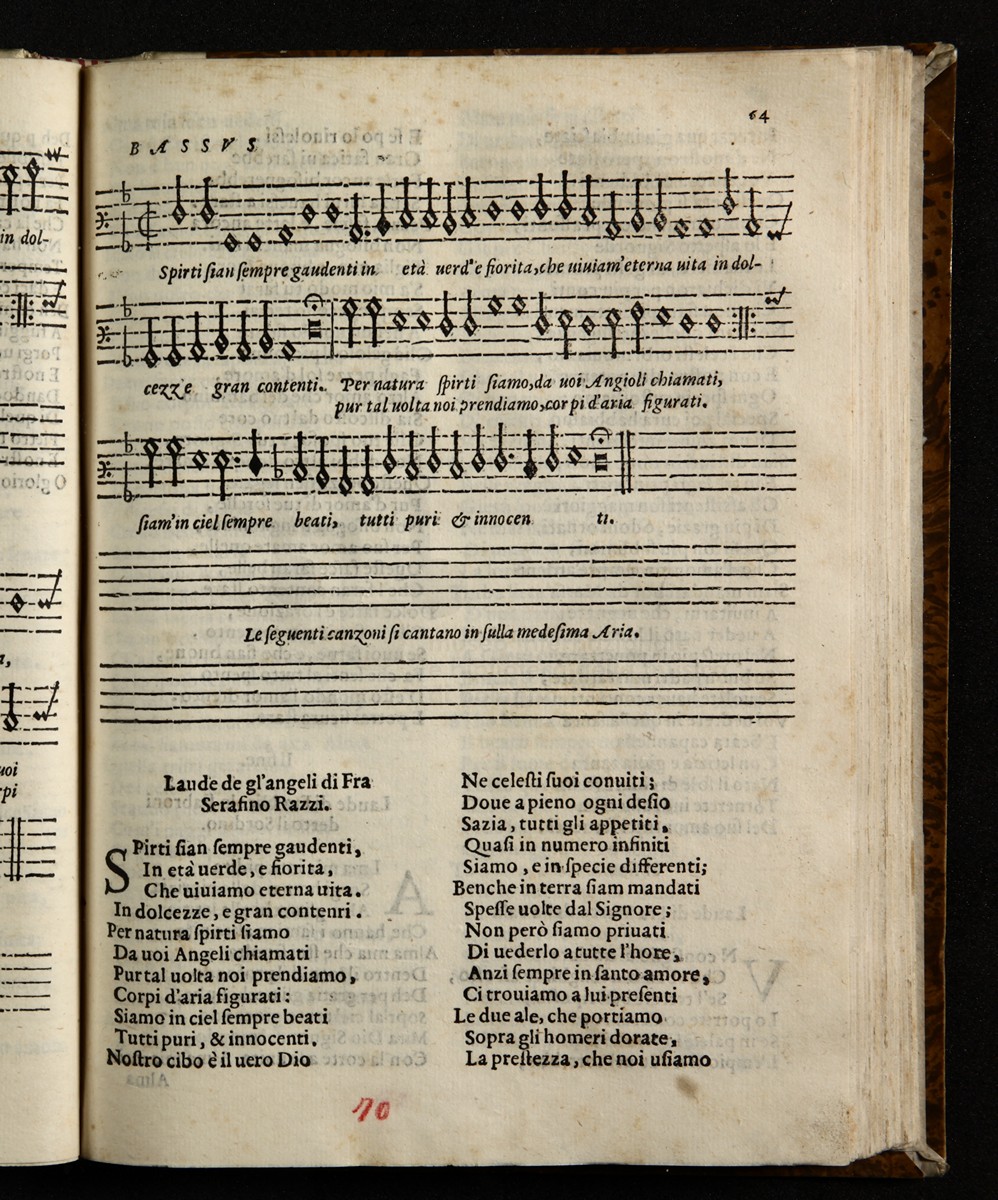 64
BASSVS
Spirti ſian ſempre gaudenti in età uerd'e fiorita, che uiuiam'eterna uita in dol-
cezze gran contenti. Per natura ſpirti ſiamo, da uoi Angioli chiamati,
pur tal uolta noi prendiamo, corpi d'aria figurati.
ſiam'in ciel ſempre beati, tutti puri & innocen ti.
Le ſeguenti canzoni ſi cantano in ſulla medeſima Aria.
Laude de gl'angeli di Fra
Serafino Razzi.
SPirti ſian ſempre gaudenti,
In età uerde, e fiorita,
Che uiuiamo eterna uita.
In dolcezze, e gran contenri.
Per natura ſpirti ſiamo
Da uoi Angeli chiamati
Pur tal uolta noi prendiamo,
Corpi d'aria figurati:
Siamo in ciel ſempre beati
Tutti puri, & innocenti.
Noſtro cibo è il uero Dio
Ne celeſti ſuoi conuiti;
Doue a pieno ogni deſio
Sazia, tutti gli appetiti,
Quaſi in numero infiniti
Siamo, e in ſpecie differenti;
Benche in terra ſiam mandati
Speſſe uolte dal Signore;
Non però ſiamo priuati
Di uederlo a tutte l'hore,
Anzi ſempre in ſanto amore,
Ci trouiamo a lui preſenti
Le due ale, che portiamo
Sopra gli homeri dorate,
La preſtezza, che noi uſiamo
70
in dol-
uoi